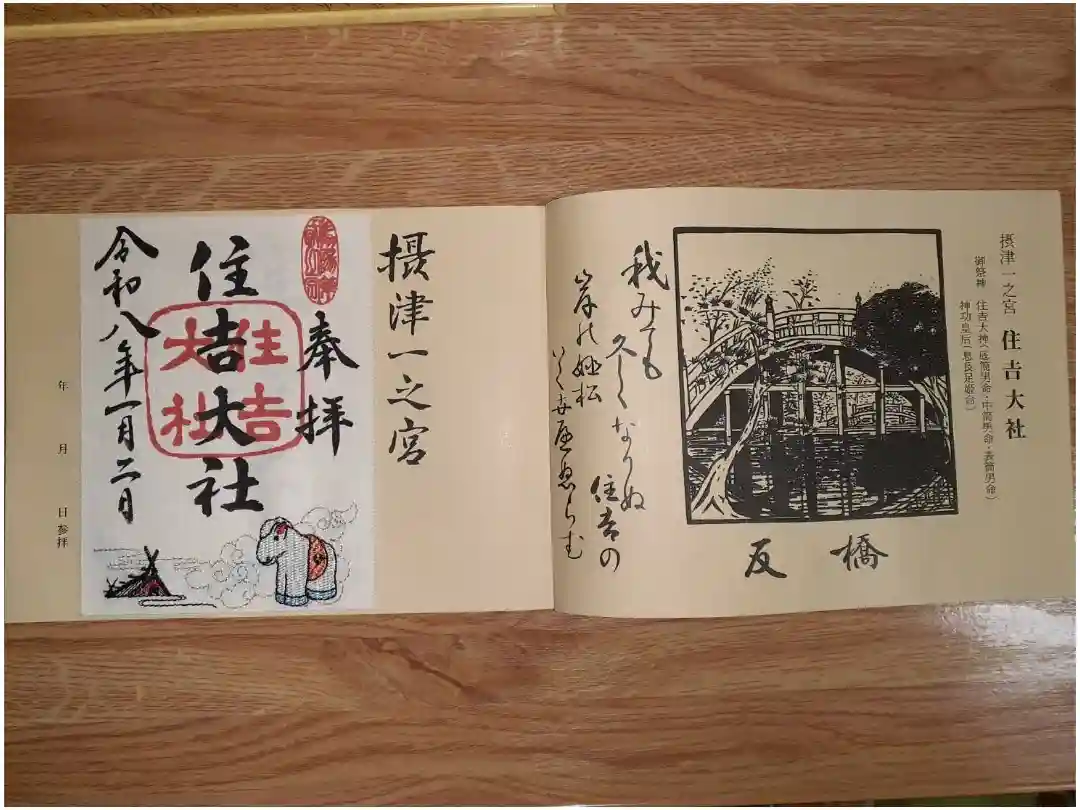 摂津一之宮 住吉大社
御祭神 住吉大神(底筒男命・中筒男命・表筒男命)
神功皇后(息長足姫命)
反橋
我みても
久しくなりぬ
住吉の
岸の姫松
いく世らむ
摂津一之宮
奉拝
住吉大社
住吉
大社
令和八年一月二日
年 月 日参拝